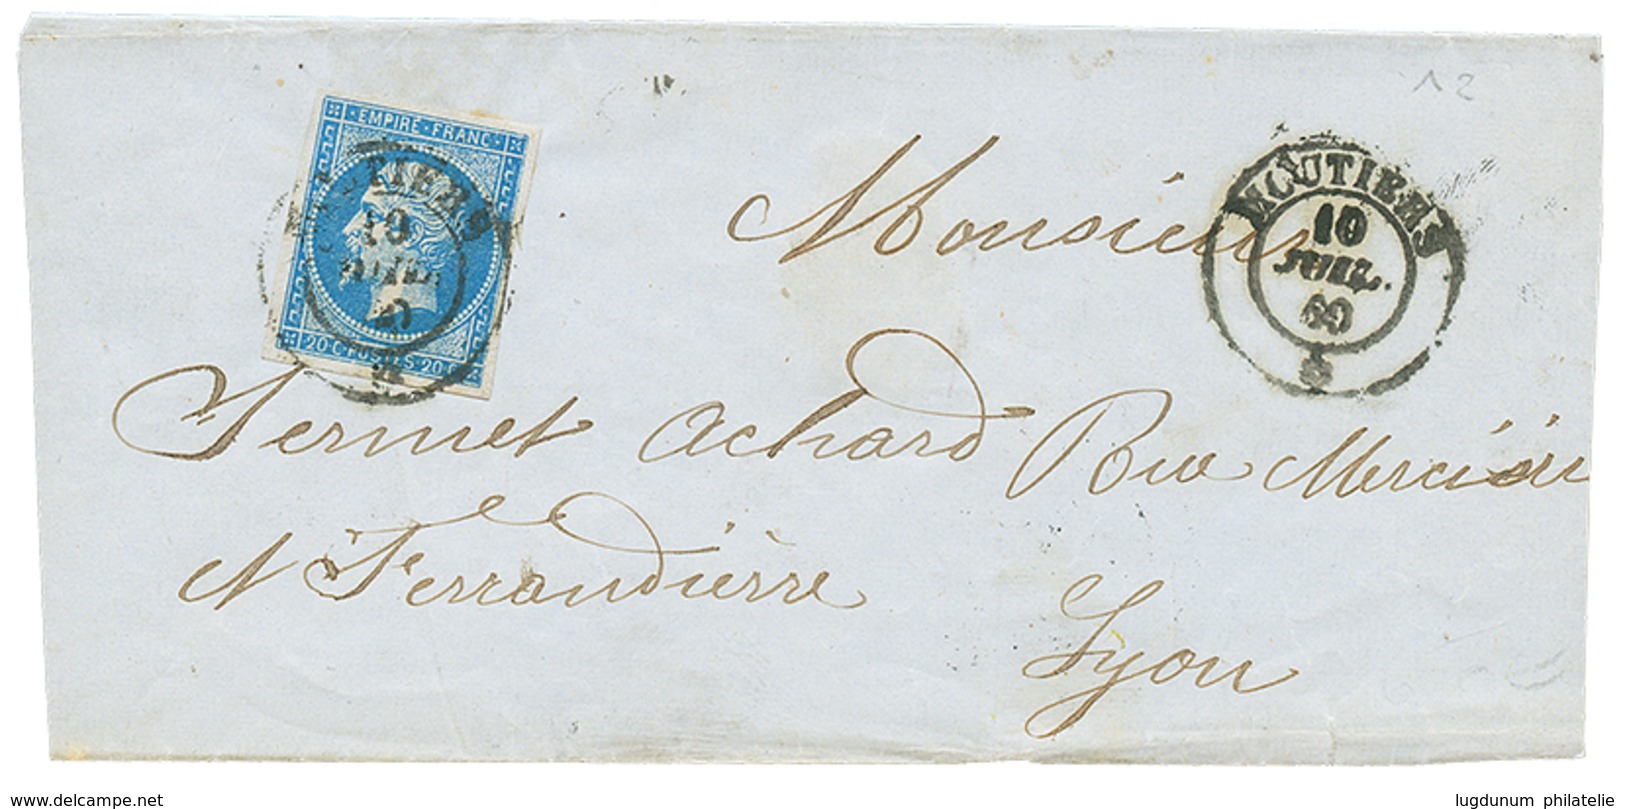 12
EMPIRE · FRANC
MOUTIERS
10
JUIL.
60
20·C·POSTES·20·C
MOUTIERS
10
JUIL.
60
Monsieur
Sermet Achard Rue Mercière
et Ferrandière
Lyon
www.delcampe.net
lugdunum philatelie